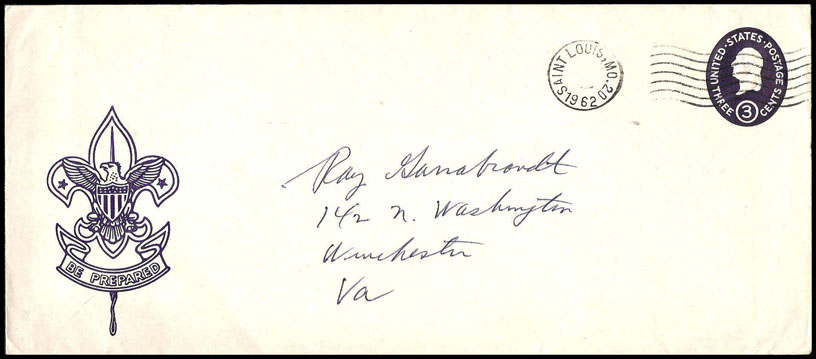 SAINT LOUIS, MO. 20
1962
UNITED·STATES·POSTAGE
THREE 3 CENTS
Ray Garrabrandt
142 N. Washington
Winchester
Va
BE PREPARED